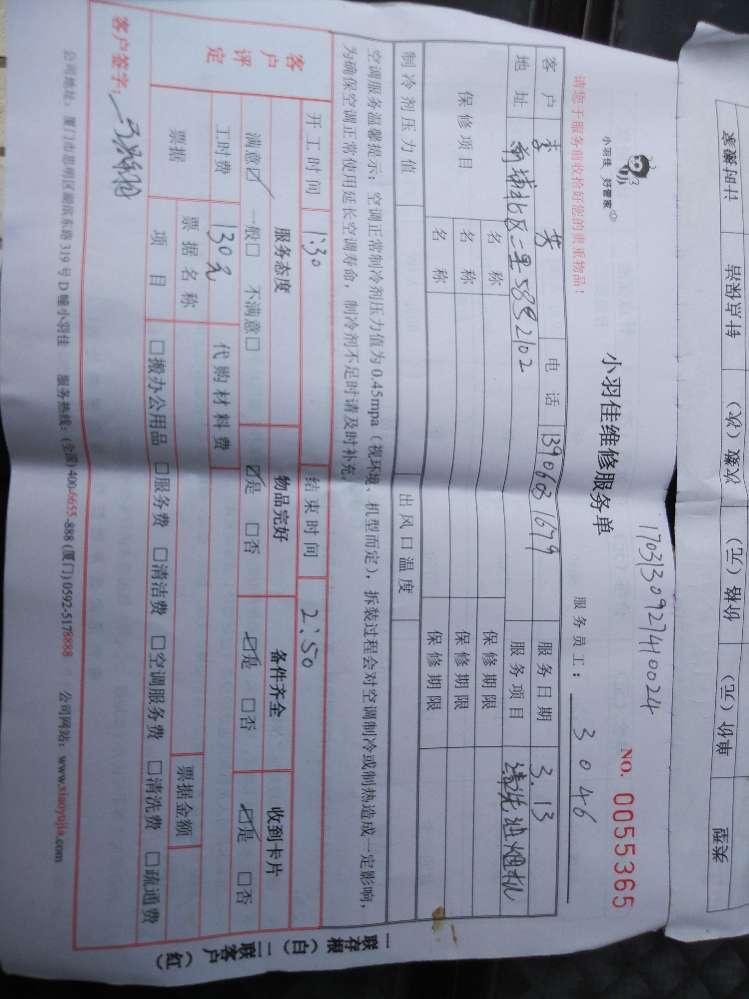 小羽佳 好管家
请您于服务前收拾好您的贵重物品！
小羽佳维修服务单
170313092741 0024
NO. 0055365
服务员工： 3046
客户 李 电话 服务日期 3.13
地址 2102 服务项目 清洗油烟机
保修项目 名称 保修期限
名称 保修期限
名称 保修期限
制冷剂压力值 出风口温度
空调服务温馨提示：空调正常制冷剂压力值为0.45mpa（视环境、机型而定），拆装过程会对空调制冷或制热造成一定影响，
为确保空调正常使用延长空调寿命，制冷剂不足时请及时补充。
开工时间 1:30 结束时间 2:50
客户评定 服务态度 物品完好 备件齐全 收到卡片
满意☑ 一般□ 不满意□ ☑是 □否 ☑是 □否 ☑是 □否
工时费 130元 代购材料费
票据 票据名称 票据金额
项目 □搬办公用品 □服务费 □清洁费 □空调服务费 □清洗费 □疏通费
客户签字：
公司地址：厦门市思明区 319号D幢小羽佳 服务热线：(全国)400-6655-888 (厦门)0592-5178888 公司网站：www.xiaoyujia.com
一联存根（白） 二联客户（红）
计时搬家
次数（次）
价格（元）
单价（元）